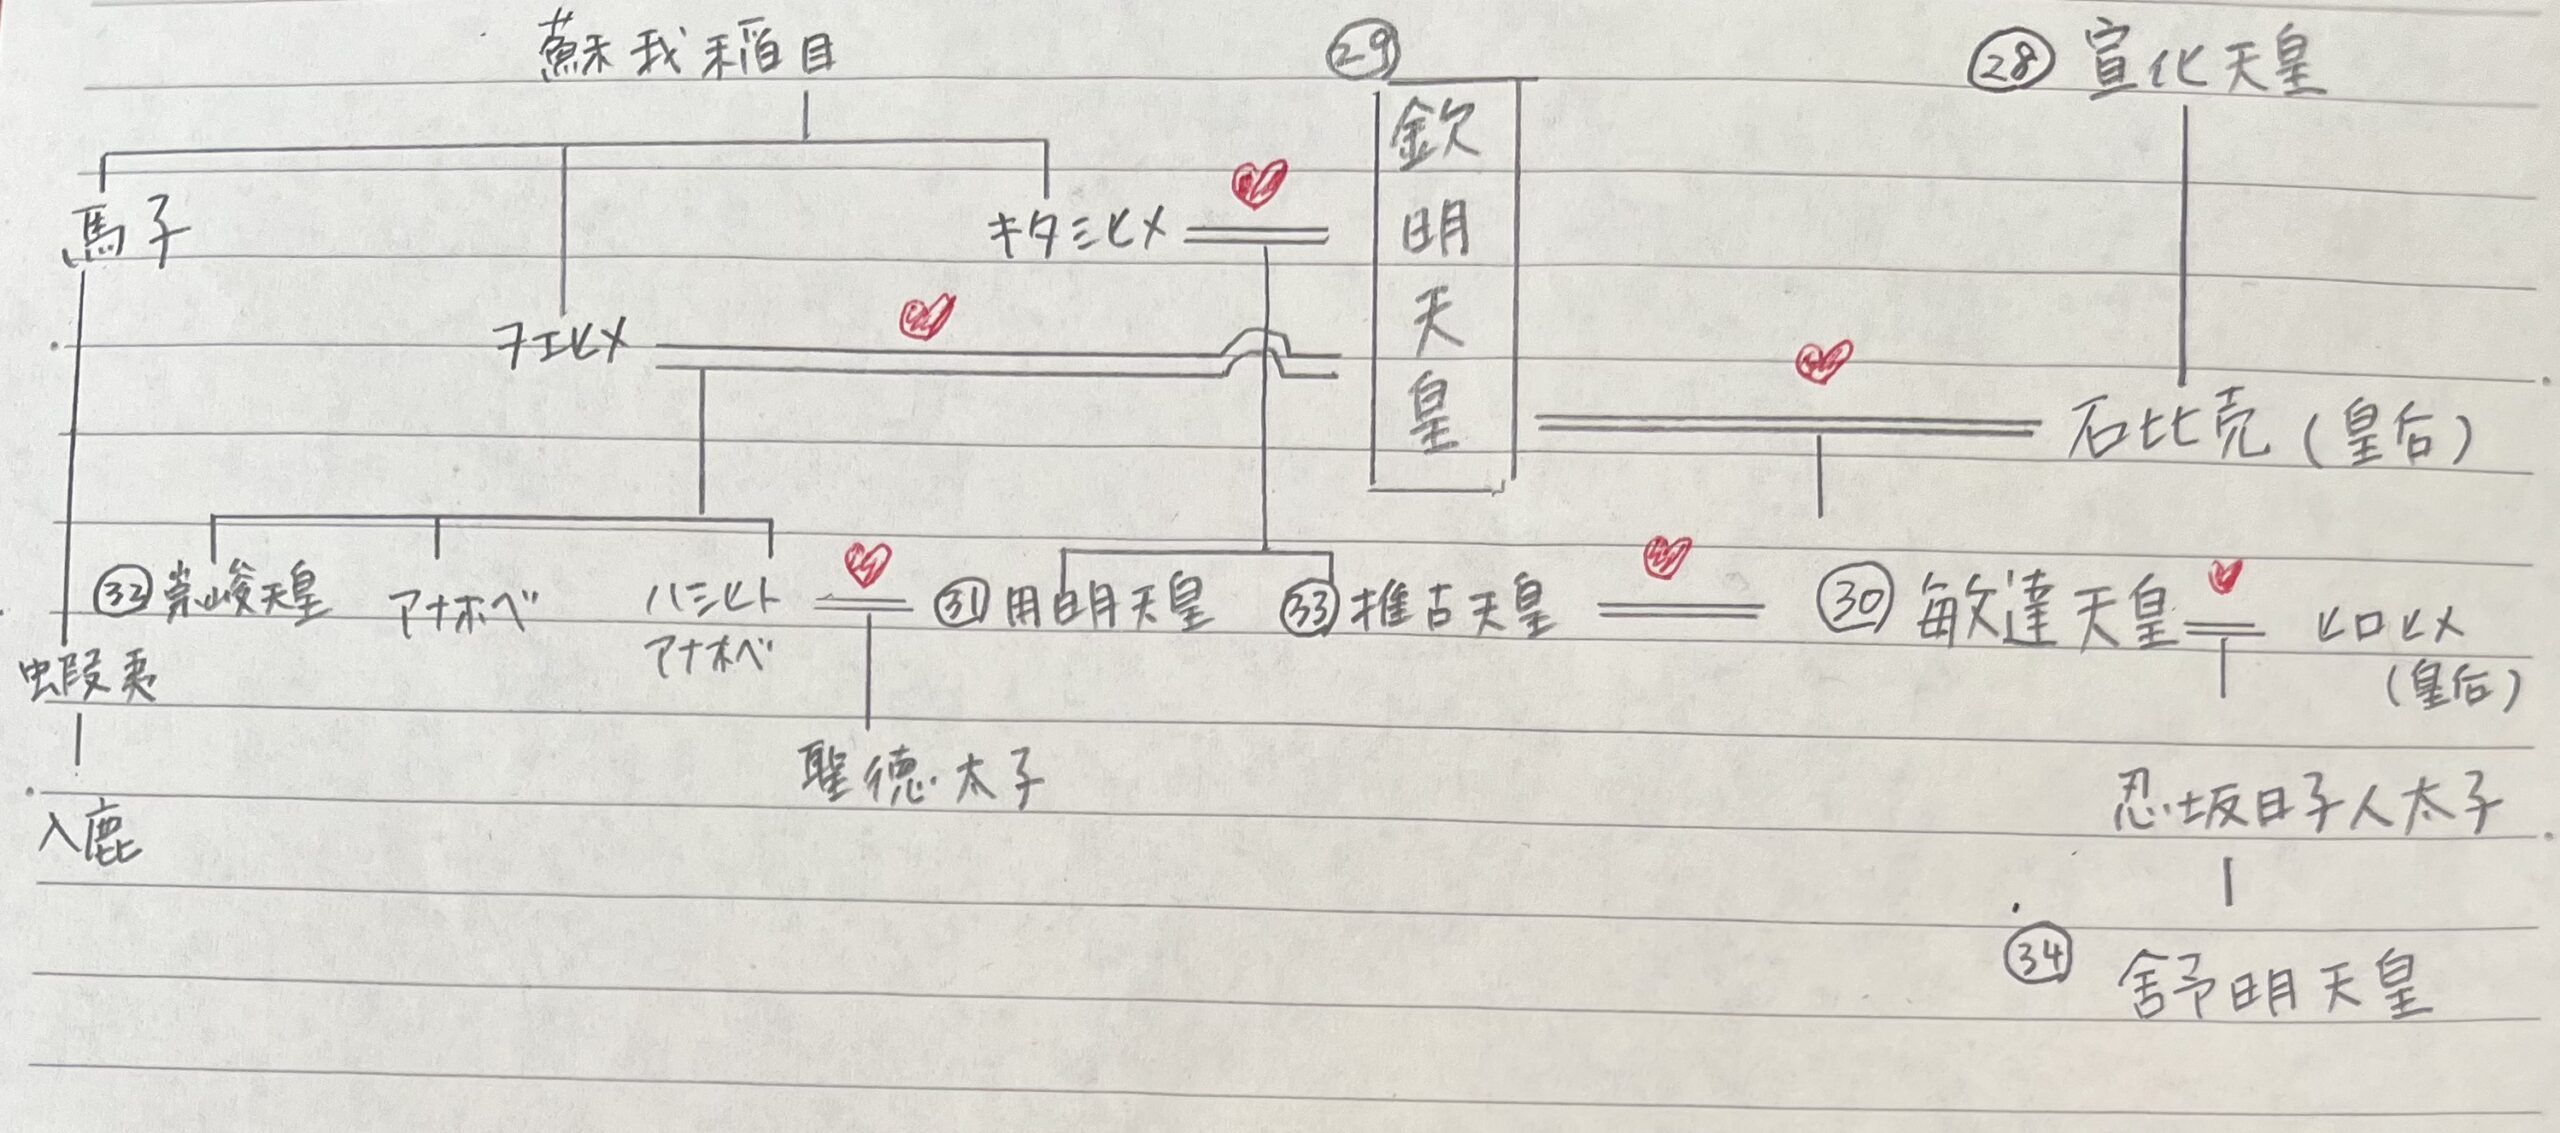 蘇我稲目
㉙
㉘ 宣化天皇
欽明天皇
馬子
キタシヒメ
ヲエヒメ
石比売(皇后)
㉝崇峻天皇
アナホベ
ハシヒト
アナホベ
㉛用明天皇
㉝推古天皇
㉚敏達天皇
ヒロヒメ
(皇后)
蝦夷
聖徳太子
忍坂日子人太子
入鹿
㉞
舒明天皇